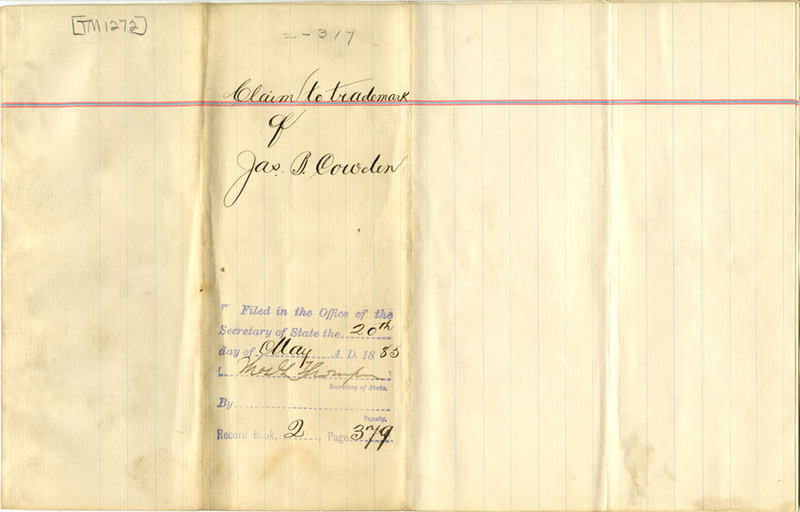 [TM1272]
2-379
Claim to trademark
of
Jas. B. Cowden
Filed in the Office of the
Secretary of State the 20th
day of May A. D. 1885
Thos L Thompson
Secretary of State.
By
Deputy.
Record Book, 2, Page 379